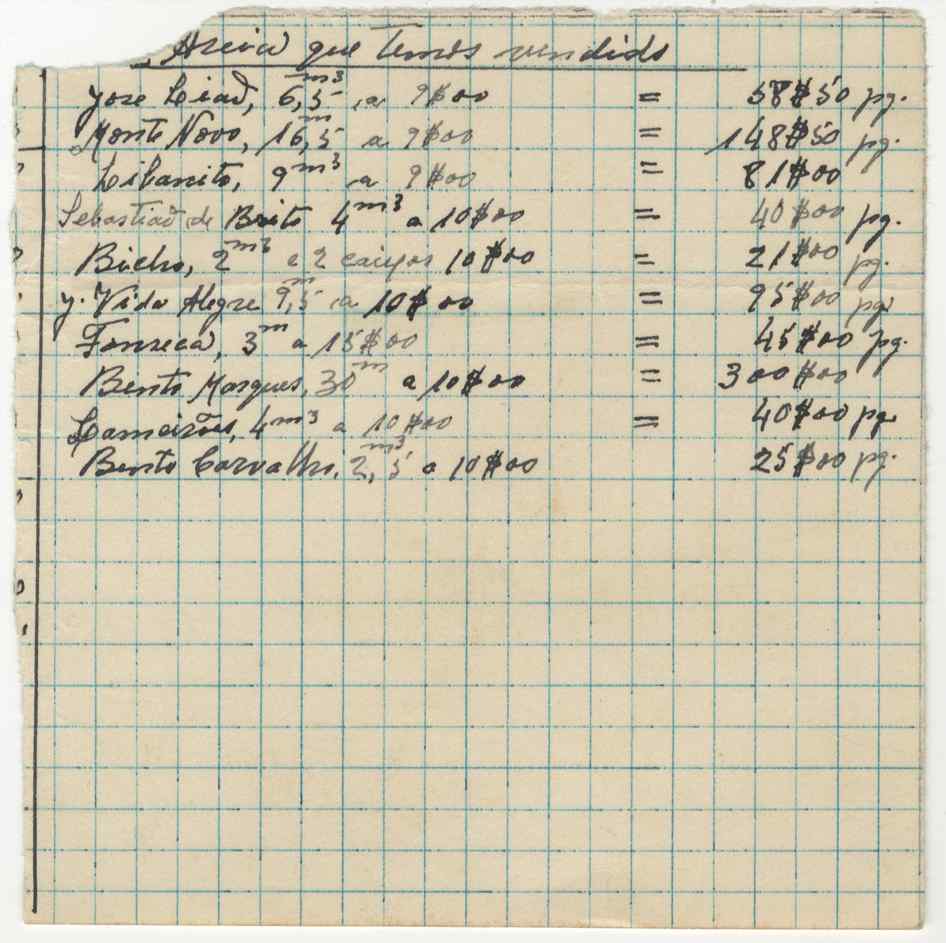 Areia que temos vendido
José Liaõ, 6,5 m3 a 9$00 = 58$50 pg.
Monte Novo, 16,5 m a 9$00 = 148$50 pg.
Libanito, 9 m3 a 9$00 = 81$00
Sebastiaõ de Brito 4 m3 a 10$00 = 40$00 pg.
Bicho, 2 m3 e 2 caixas 10$00 = 21$00 pg.
J. Vida Alegre 9,5 m a 10$00 = 95$00 pg.
Fonseca, 3 m a 15$00 = 45$00 pg.
Bento Marques, 30 m a 10$00 = 300$00
Lameirões, 4 m3 a 10$00 = 40$00 pg
Bento Carvalho, 2,5 m3 a 10$00 25$00 pg.